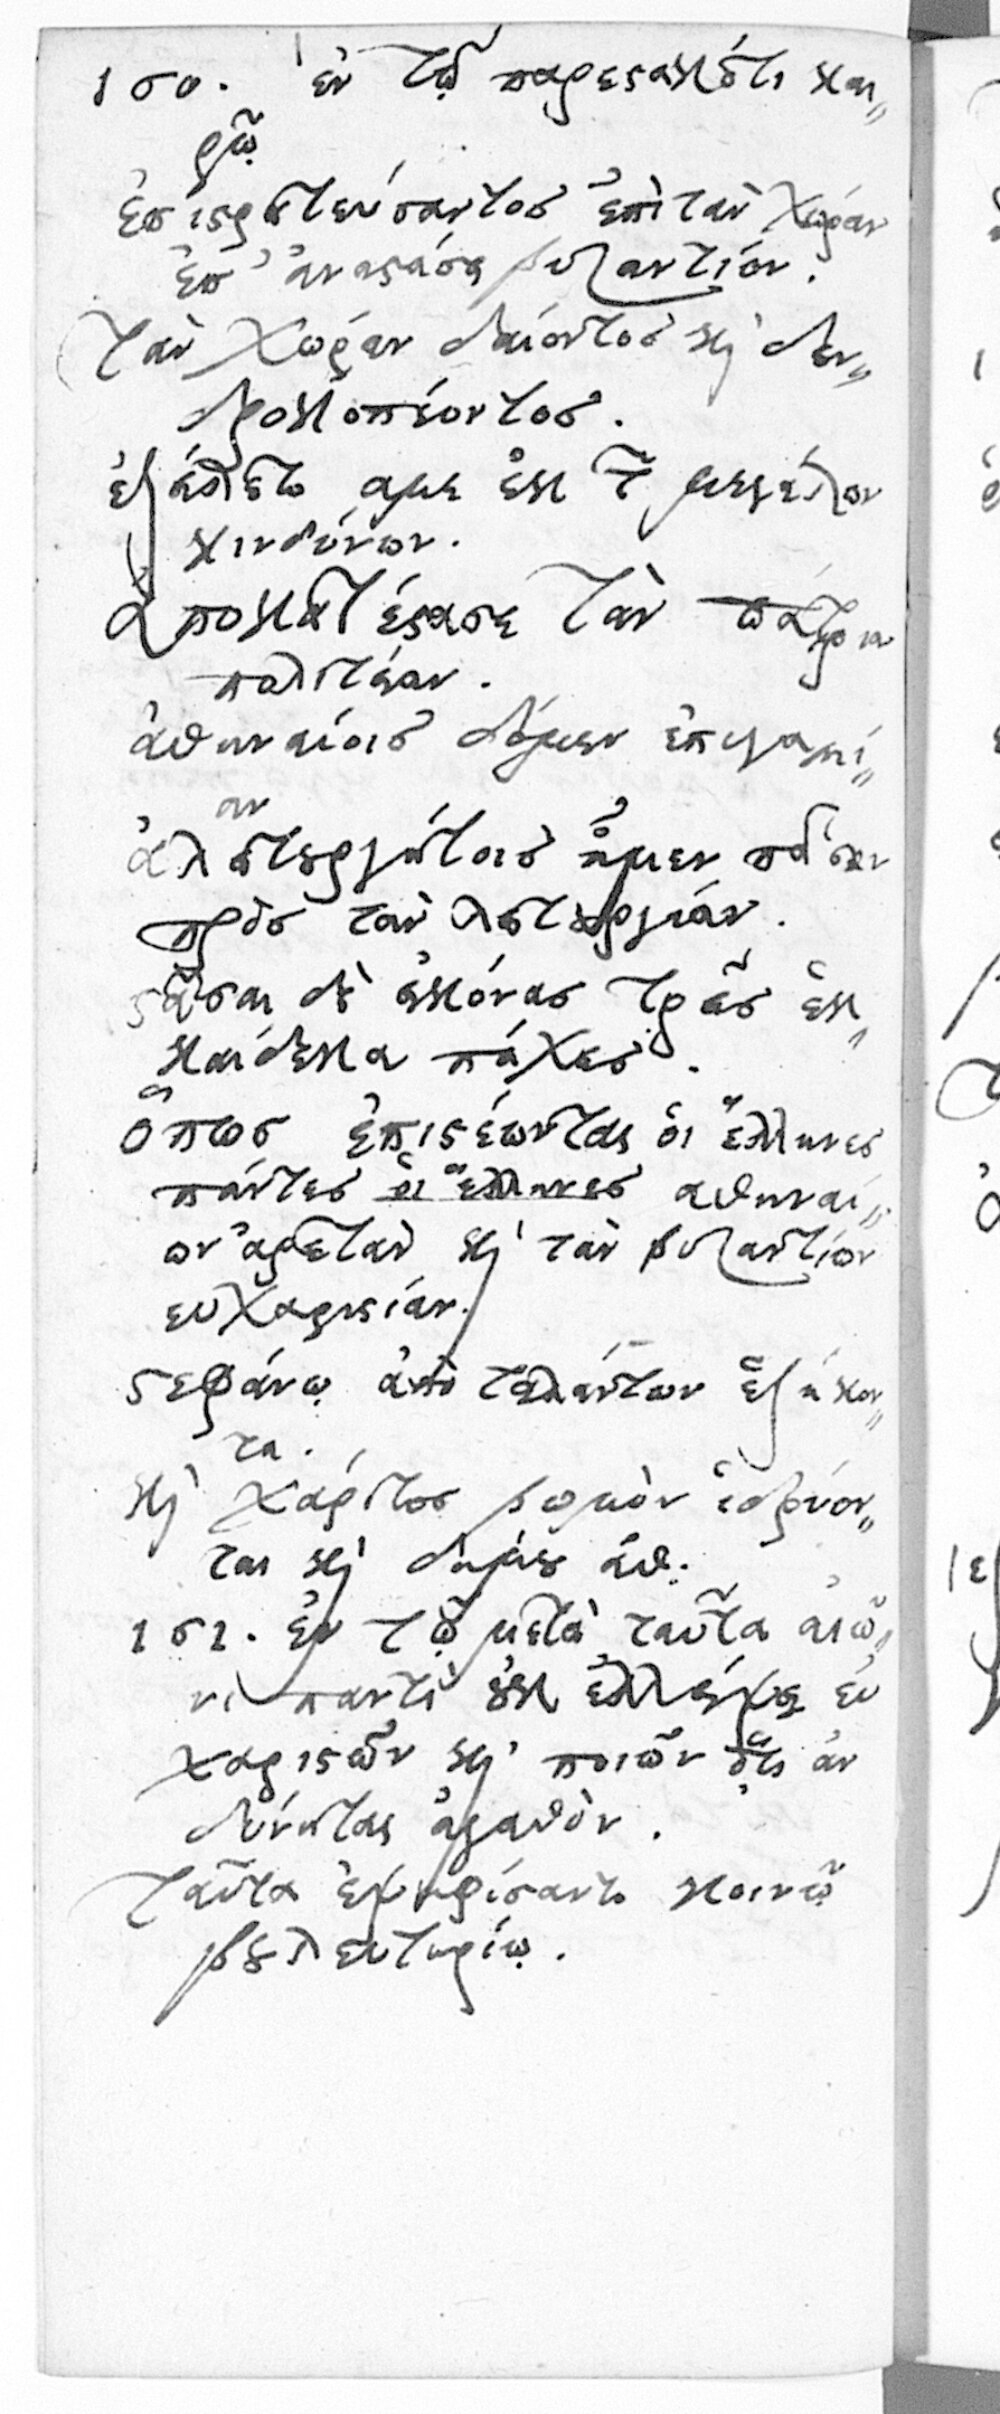 150. ἐν τῷ παρεστακότι και„
ρῷ
ἐπιστρατεύσαντος ἐπὶ τὰν χώραν
ἐπ' ἀναστάσει βυζαντίον.
τὰν χώραν δαίοντος κὶ δεν„
δροκοπέοντος.
ἐξείλετο αμε ἐκ τ͂ μεγάλων
κινδύνων.
ἀποκατέστασε τὰν πάτριον
πολιτείαν.
ἀθηναίοις δόμεν ἐπιγαμί„
αν
ἀλειτουργήτοις ἦμεν πασᾶν
πρὸς τὰν λειτουργιάν.
στᾶσαι δὲ εἰκόνας τρεῖς ἑκ„
καίδεκα πάχεις.
ὅπως ἐπιστέωνται οἱ ἕλληνες
πάντες οἱ ἕλληνες αθηναί„
ων ἀρετὰν κὶ τὰν βυζαντίων
ευχαριστίαν.
στεφάνῳ ἀπὸ ταλάντων ἑξήκον„
τα.
κὶ χάριτος βωμὸν ἱδρύον„
ται κὶ δήμου ἀθ.
151. ἐν τῷ μετὰ ταῦτα αἰῶ„
νι παντὶ οὐκ ἐλλείψει εὐ
χαριστῶν κὶ ποιῶν ὅτι ἂν
δύνηται ἀγαθὸν.
ταῦτα ἐψηφίσαντο κοινῷ
βουλευτηρίῳ.